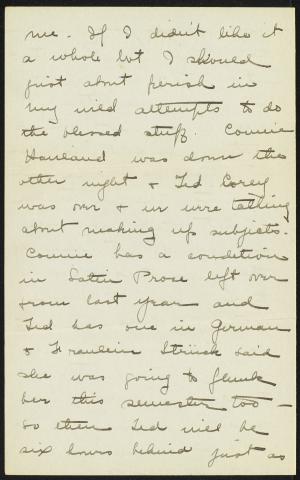 me. If I didn't like it
a whole lot I should
just about perish in
my wild attempts to do
the blessed stuff. Connie
Haviland was down the
other night & Ted Corey
was over & we were talking
about making up subjects.
Connie has a condition
in Latin Prose left over
from last year and
Ted has one in German
& Fraulein Struck said
she was going to flunk
her this semester too –
so then Ted will be
six hours behind just as